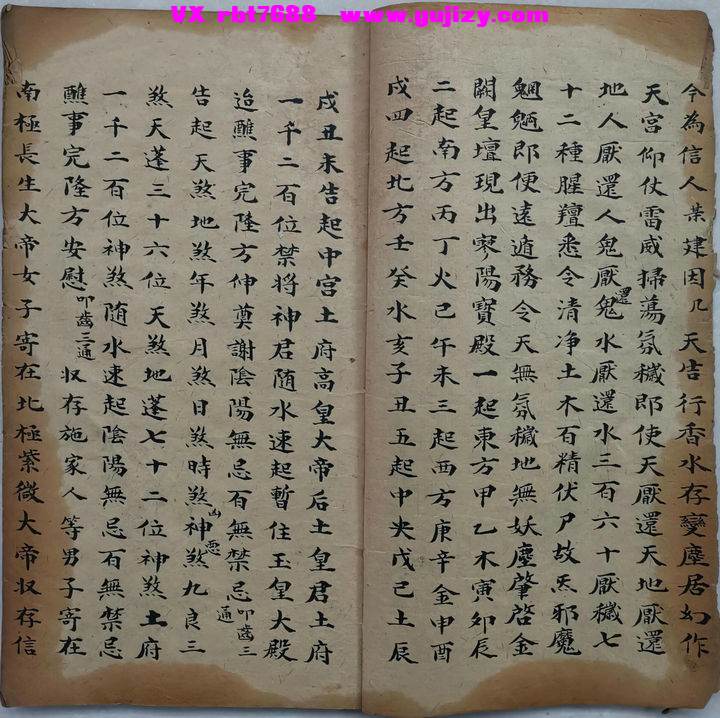 VX rbt7688 www.gujizy.com
今為信人某建因几天吉行香水存變塵居幻作
天宮仰仗雷威掃蕩氛穢即使天厭還天地厭還
地人厭還人鬼厭還鬼水厭還水三百六十厭穢七
十二種腥羶悉令清净土木百精伏尸故炁邪魔
魍魎即便遠遁務令天無氛穢地無妖塵肇啓金
闕皇壇現出寥陽寶殿一起東方甲乙木寅卯辰
二起南方丙丁火巳午未三起西方庚辛金申酉
戌四起北方壬癸水亥子丑五起中央戊己土辰
戌丑未告起中宮土府高皇大帝后土皇君土府
一千二百位禁将神君随水速起暫住玉皇大殿
迨醮事完隆方伸奠謝陰陽無忌百無禁忌叩齒三通
告起天煞地煞年煞月煞日煞時煞凶神惡煞九良三
煞天蓬三十六位天煞地蓬七十二位神煞土府
一千二百位神煞随水速起陰陽無忌百無禁忌
醮事完隆方安慰叩齒三通収存施家人等男子寄在
南極長生大帝女子寄在北極紫微大帝収存信